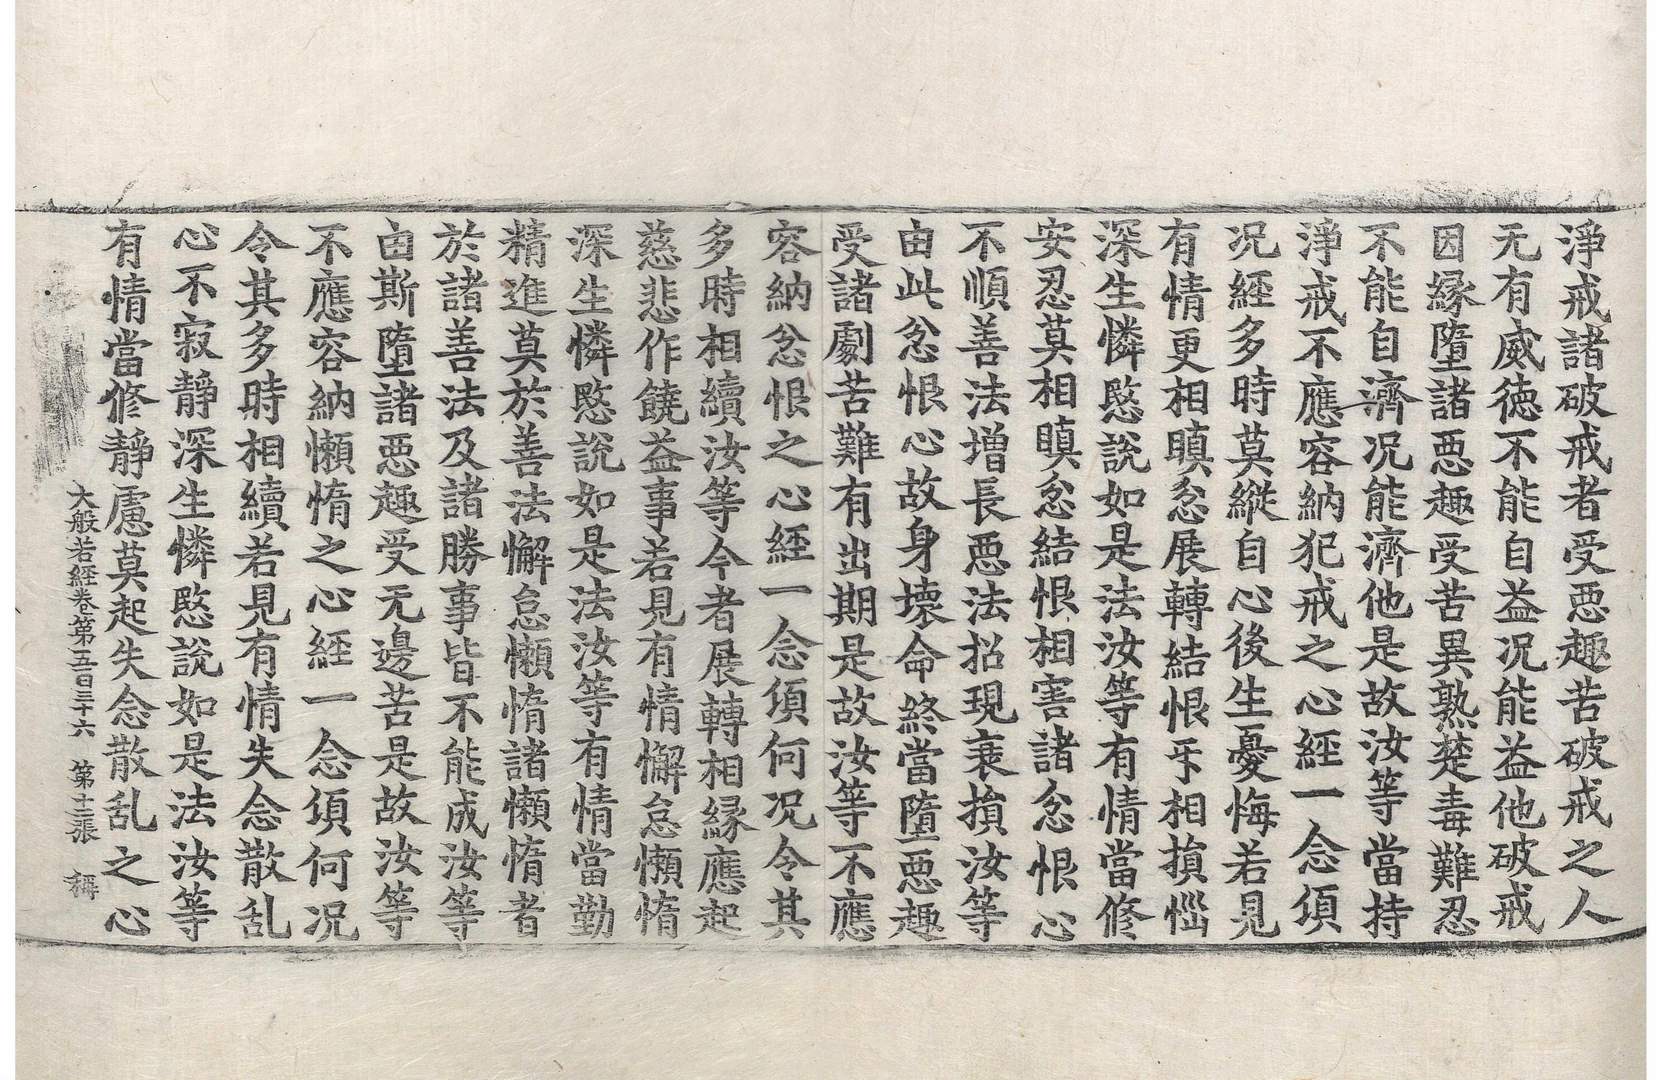 淨戒諸破戒者受惡趣苦破戒之人
无有威德不能自益况能益他破戒
因縁墮諸惡趣受苦異熟楚毒難忍
不能自濟况能濟他是故汝等當持
淨戒不應容納犯戒之心經一念湏
况經多時莫縱自心後生憂悔若見
有情更相瞋忿展轉結恨乎相損惱
深生憐愍說如是法汝等有情當修
安忍莫相瞋忿結恨相害諸忿恨心
不順善法增長惡法招現衰損汝等
由此忿恨心故身壞命終當墮惡趣
受諸劇苦難有出期是故汝等不應
容納忿恨之心經一念湏何况令其
多時相續汝等今者展轉相縁應起
慈悲作饒益事若見有情懈怠懶惰
深生憐愍說如是法汝等有情當勤
精進莫於善法懈怠懶惰諸懶惰者
於諸善法及諸勝事皆不能成汝等
由斯墮諸惡趣受无邊苦是故汝等
不應容納懶惰之心經一念湏何况
令其多時相續若見有情失念散乱
心不寂靜深生憐愍說如是法汝等
有情當修靜慮莫起失念散乱之心
大般若經卷第五百三十六 第十三張 稱